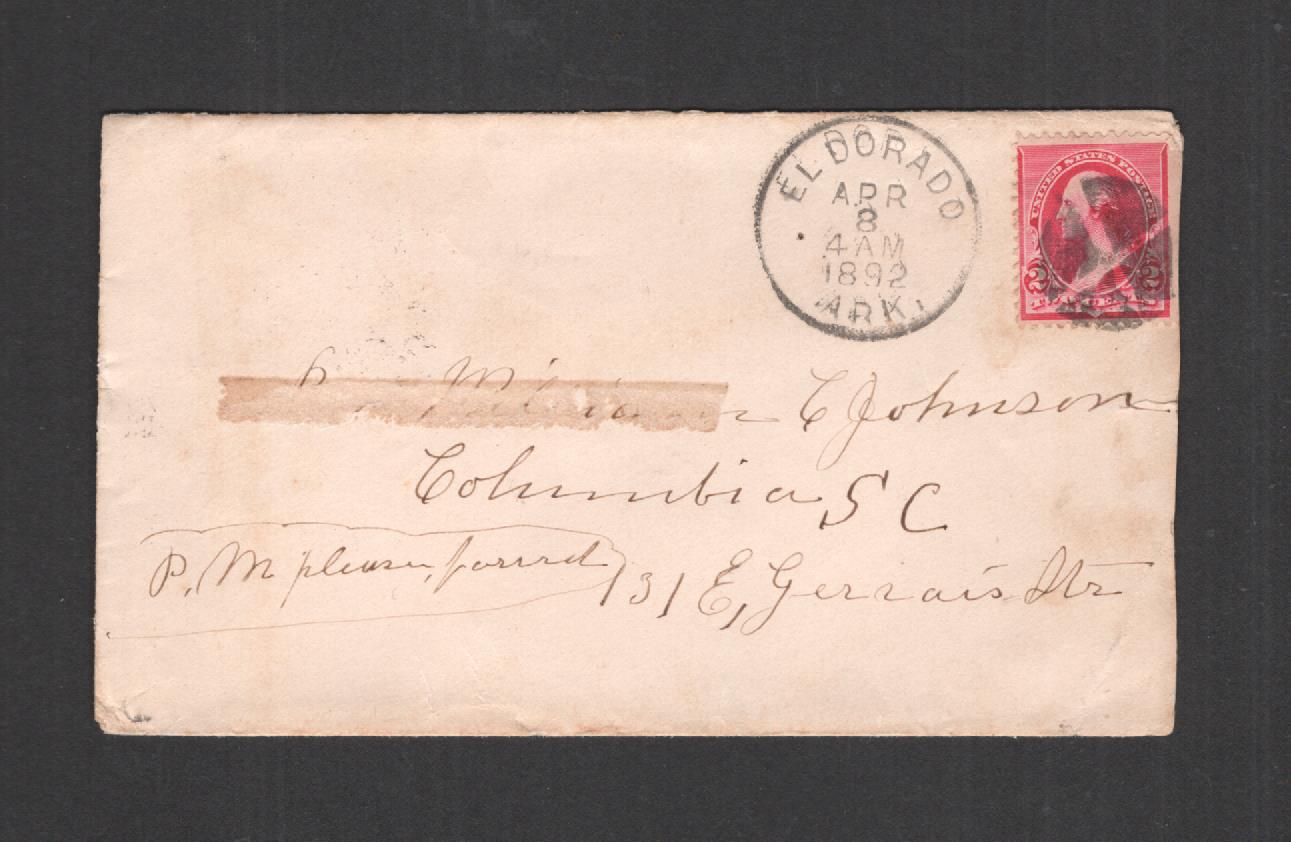 EL DORADO
APR
8
4 AM
1892
ARK.
UNITED STATES POSTAGE
2 2
C Johnson
Columbia S C
P. M please forward
131 E, Gervais Str